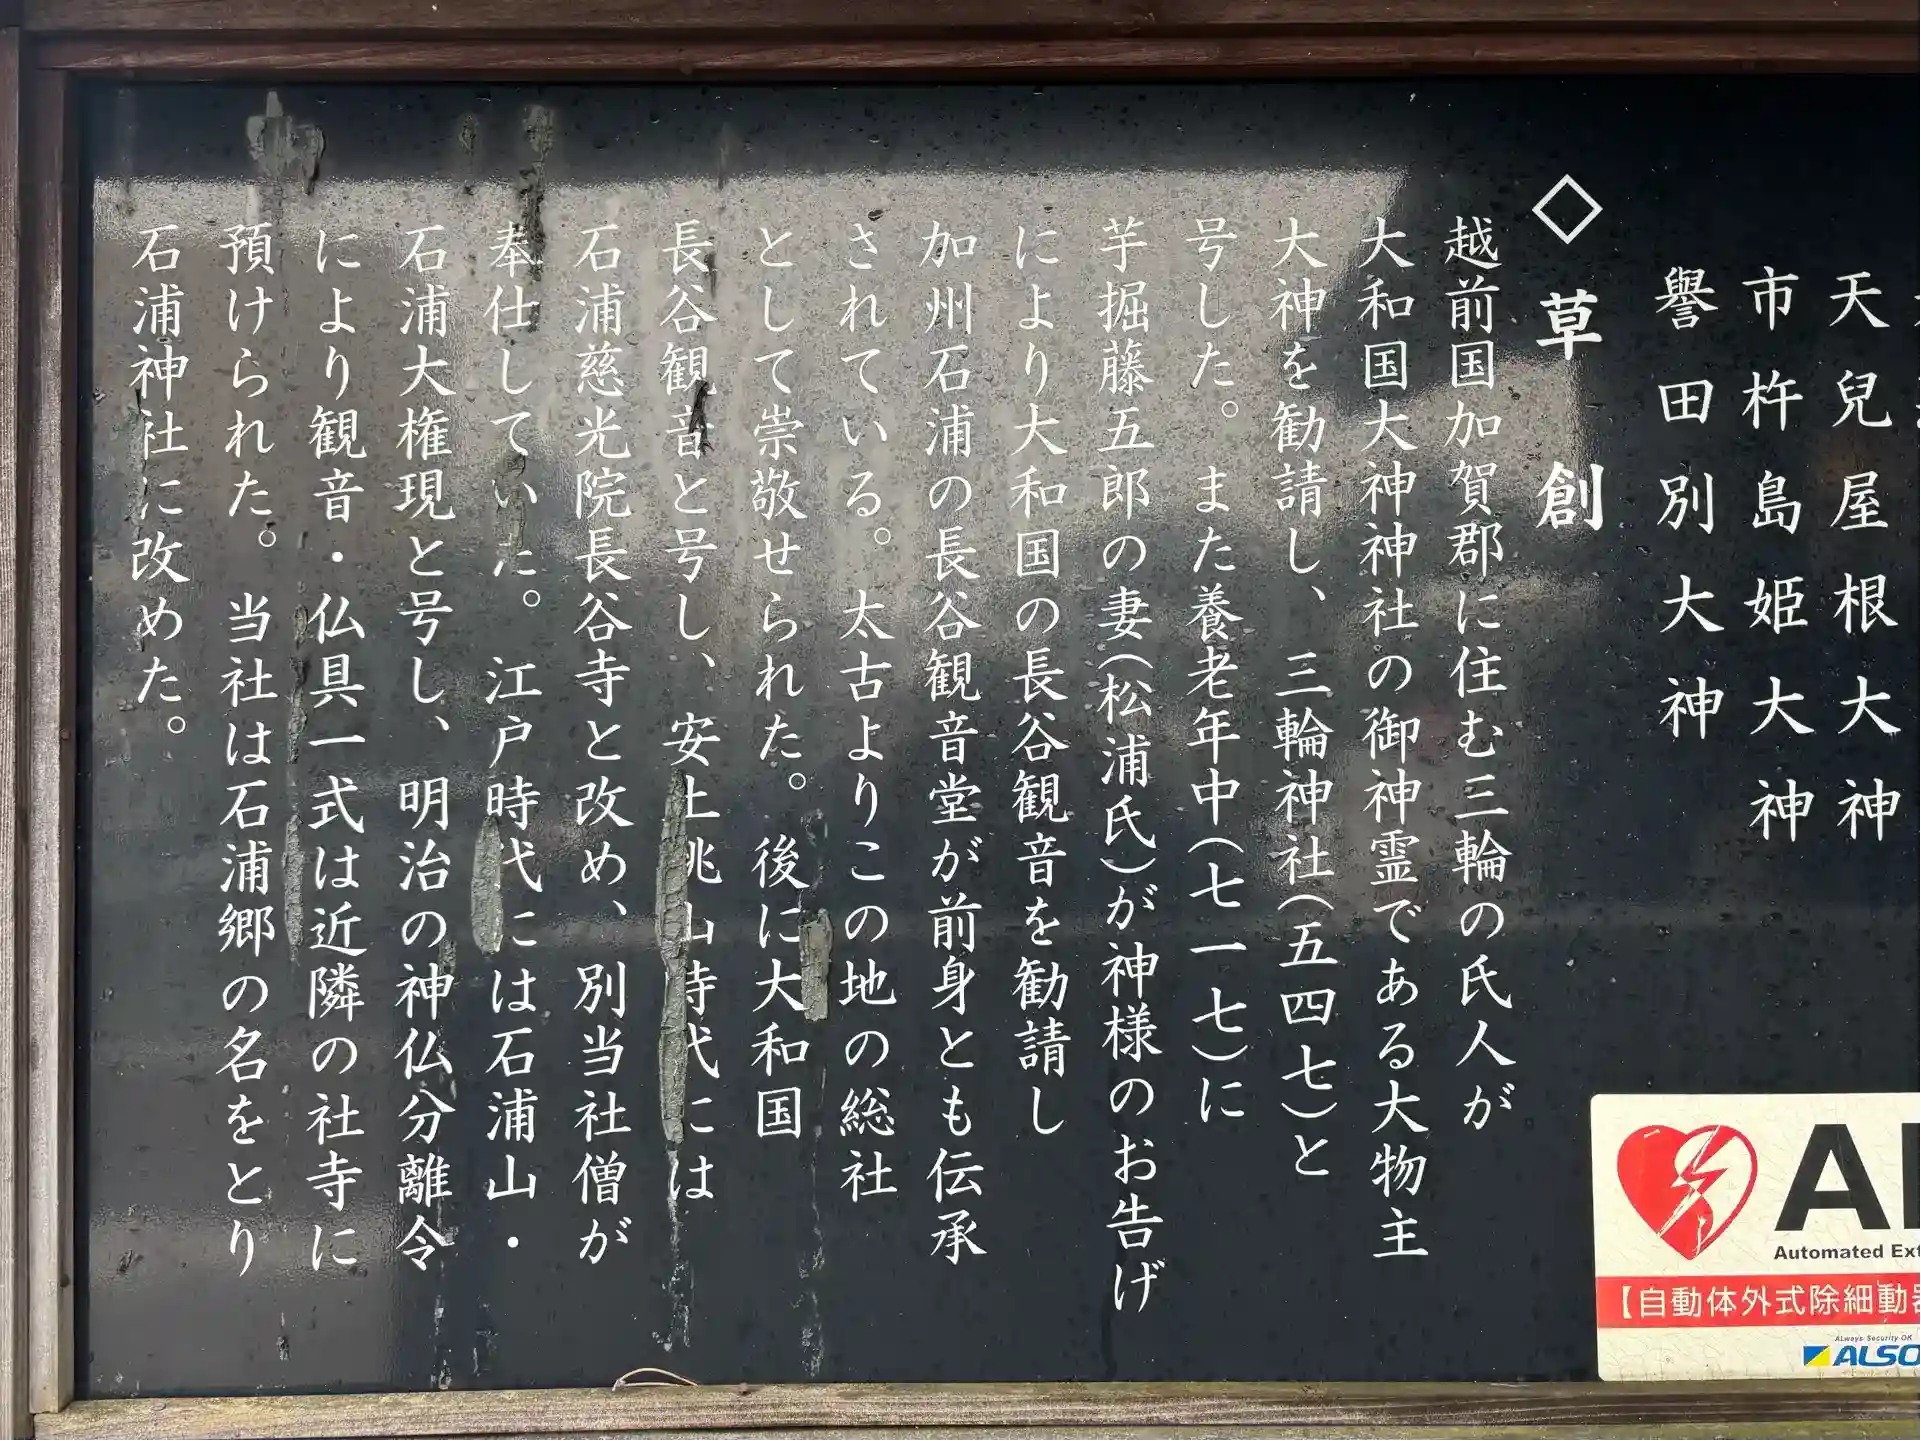 天兒屋根大神
市杵島姫大神
譽田別大神
◇草創
越前国加賀郡に住む三輪の氏人が
大和国大神神社の御神霊である大物主
大神を勧請し、三輪神社(五四七)と
号した。また養老年中(七一七)に
芋掘藤五郎の妻(松浦氏)が神様のお告げ
により大和国の長谷観音を勧請し
加州石浦の長谷観音堂が前身とも伝承
されている。太古よりこの地の総社
として崇敬せられた。後に大和国
長谷観音と号し、安土桃山時代には
石浦慈光院長谷寺と改め、別当社僧が
奉仕していた。江戸時代には石浦山・
石浦大権現と号し、明治の神仏分離令
により観音・仏具一式は近隣の社寺に
預けられた。当社は石浦郷の名をとり
石浦神社に改めた。
Automated
【自動体外式除細動
Always Security OK